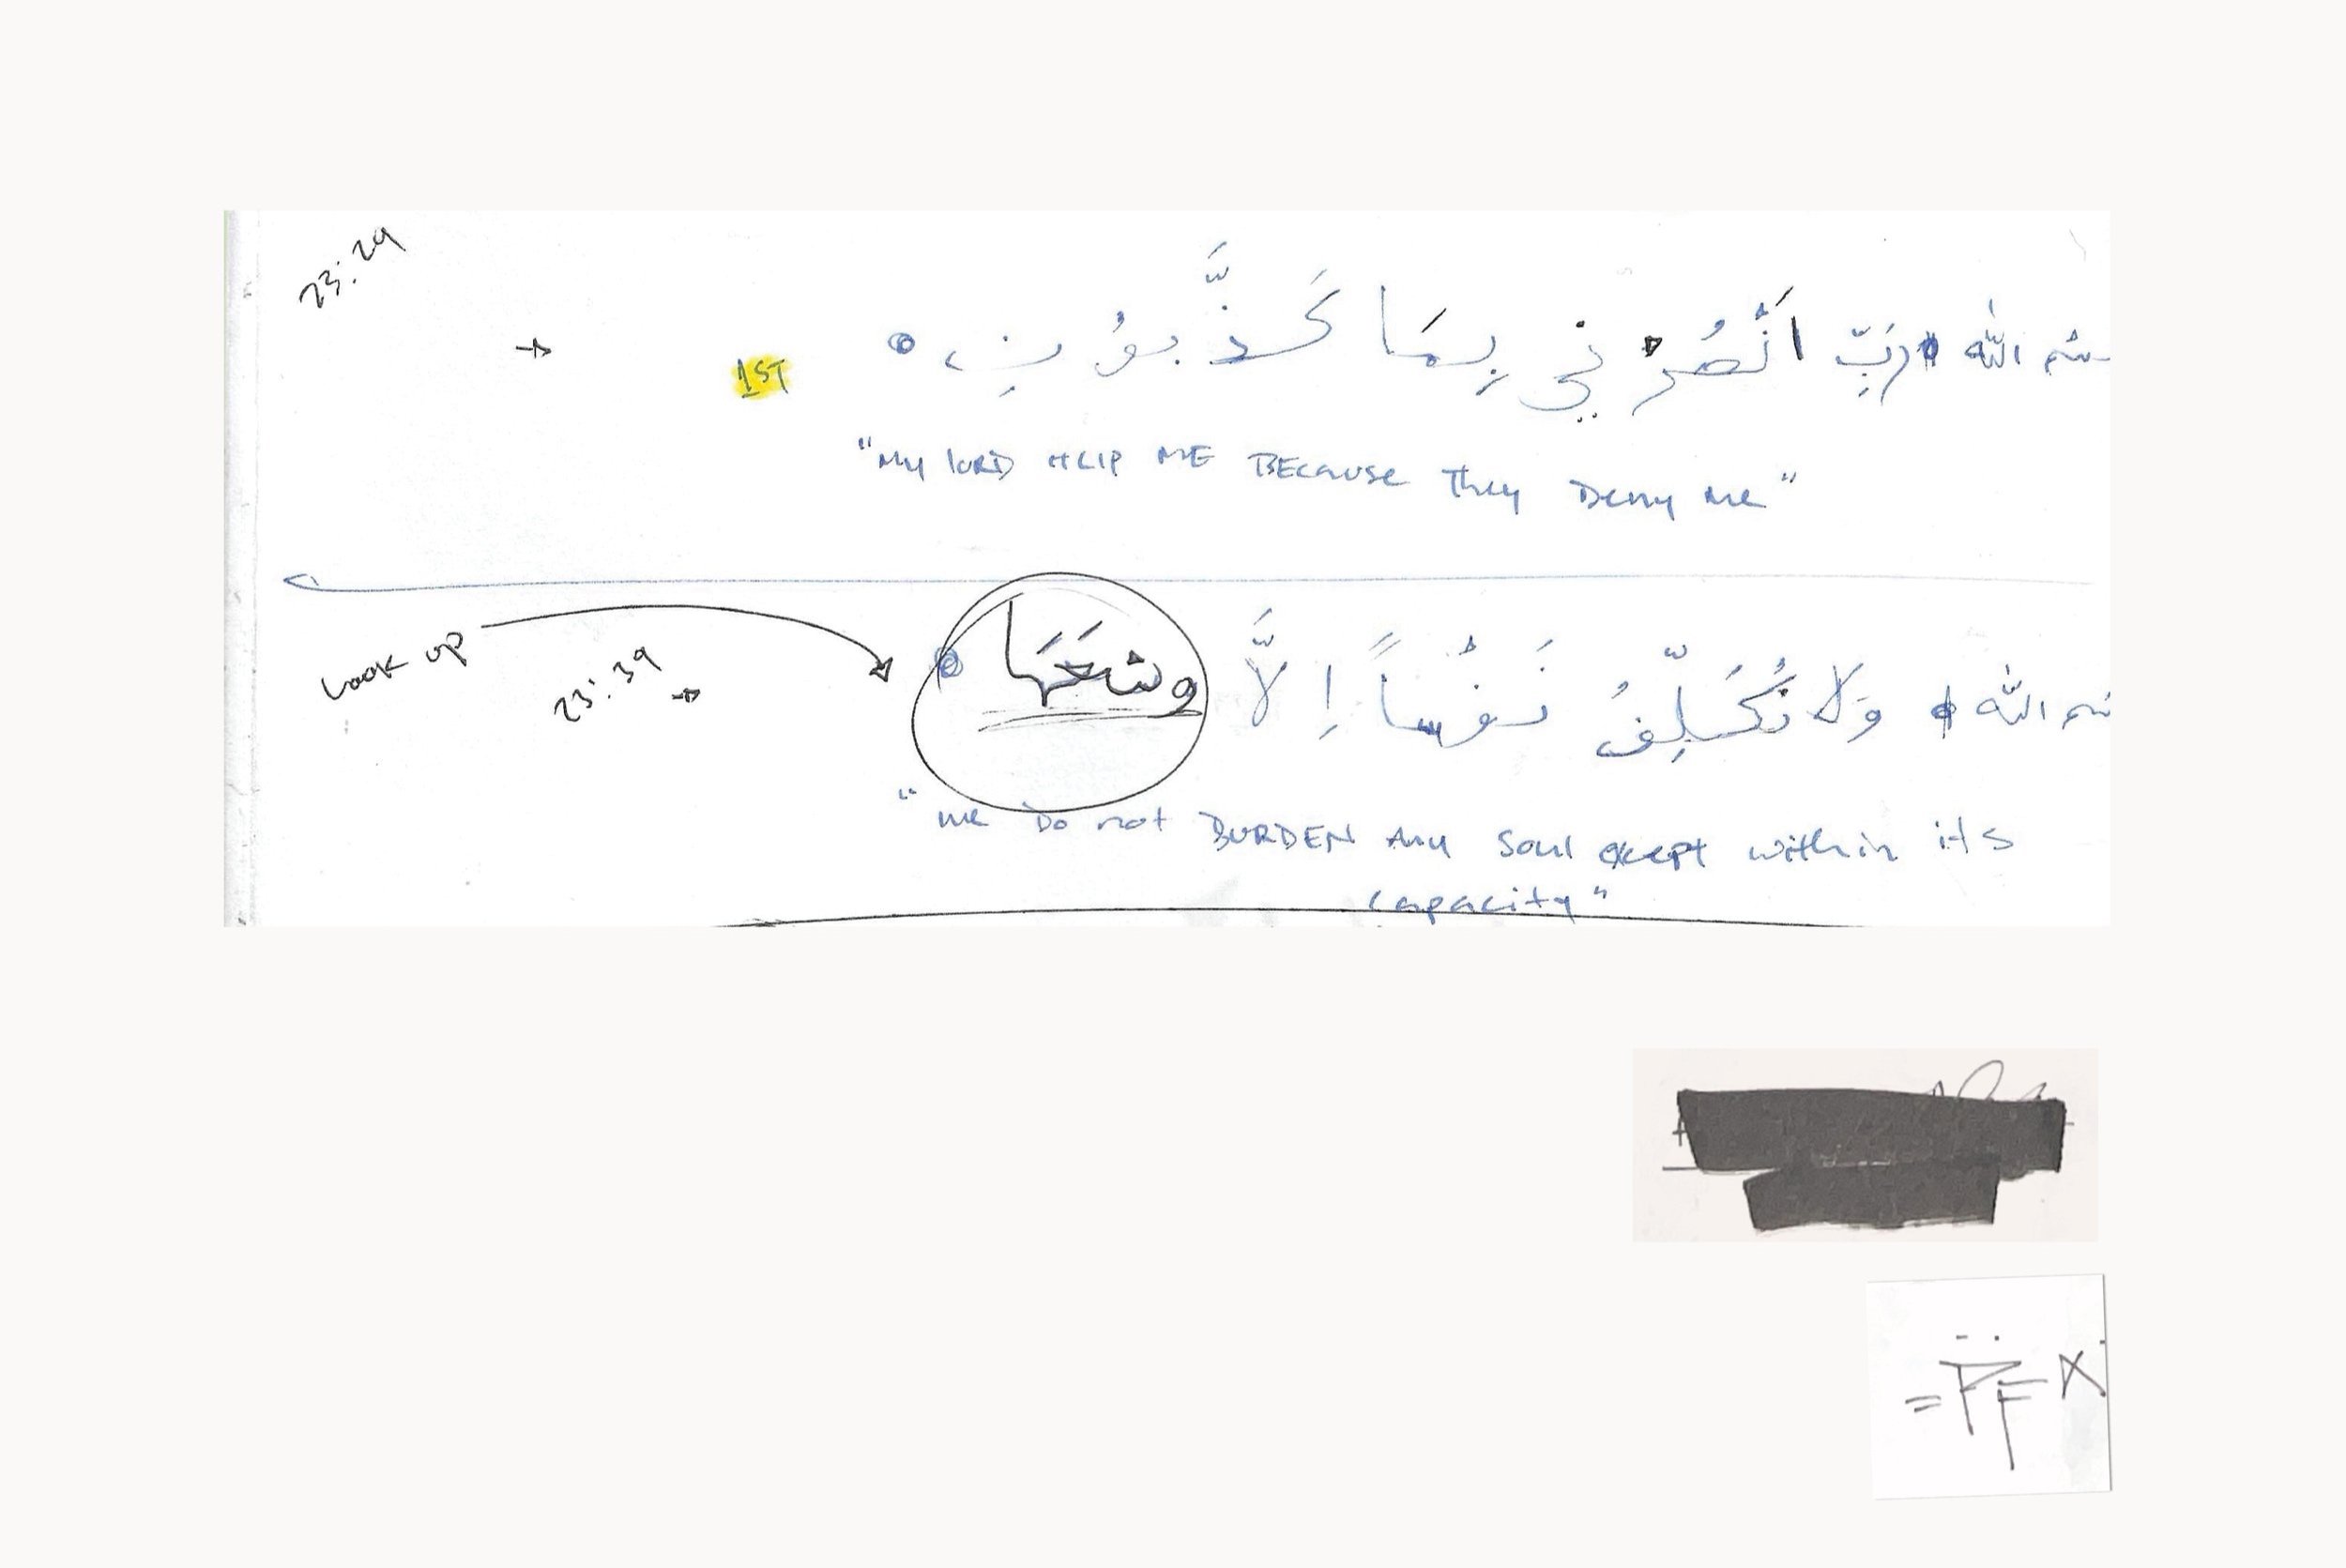 23:29
بسم الله رَبِّ اَنْصُرْنِي بِمَا كَذَّبُوُنِ
1ST
"My LORD HELP ME BECAUSE They Deny me"
بسم الله وَلَا نُكَلِّفُ نَفْساً اِلَّا وسْعَهَا
Look up
23:39
"we Do not BURDEN Any Soul except within its
capacity"